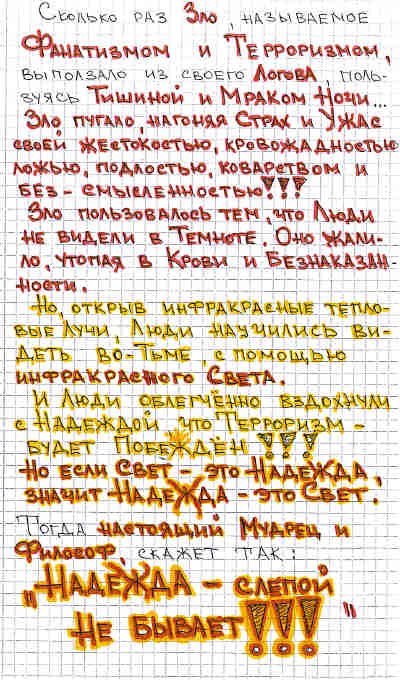 Сколько раз Зло, называемое
Фанатизмом и Терроризмом,
выползало из своего Логова, поль-
зуясь Тишиной и Мраком Ночи...
Зло пугало, нагоняя Страх и Ужас
своей жестокостью, кровожадностью
ложью, подлостью, коварством и
без-смысленностью!!!
Зло пользовалось тем, что Люди
не видели в Темноте. Оно жали-
ло, утопая в Крови и Безнаказан-
ности.
Но, открыв инфракрасные тепло-
вые лучи, Люди научились ви-
деть во-Тьме, с помощью
инфракрасного Света.
И Люди облегчённо вздохнули
с Надеждой, что Терроризм -
будет Побеждён!!!
Но если Свет - это Надежда,
значит Надежда - это Свет.
Тогда настоящий Мудрец и
Философ, скажет так:
"Надежда - слепой
не бывает!!!"